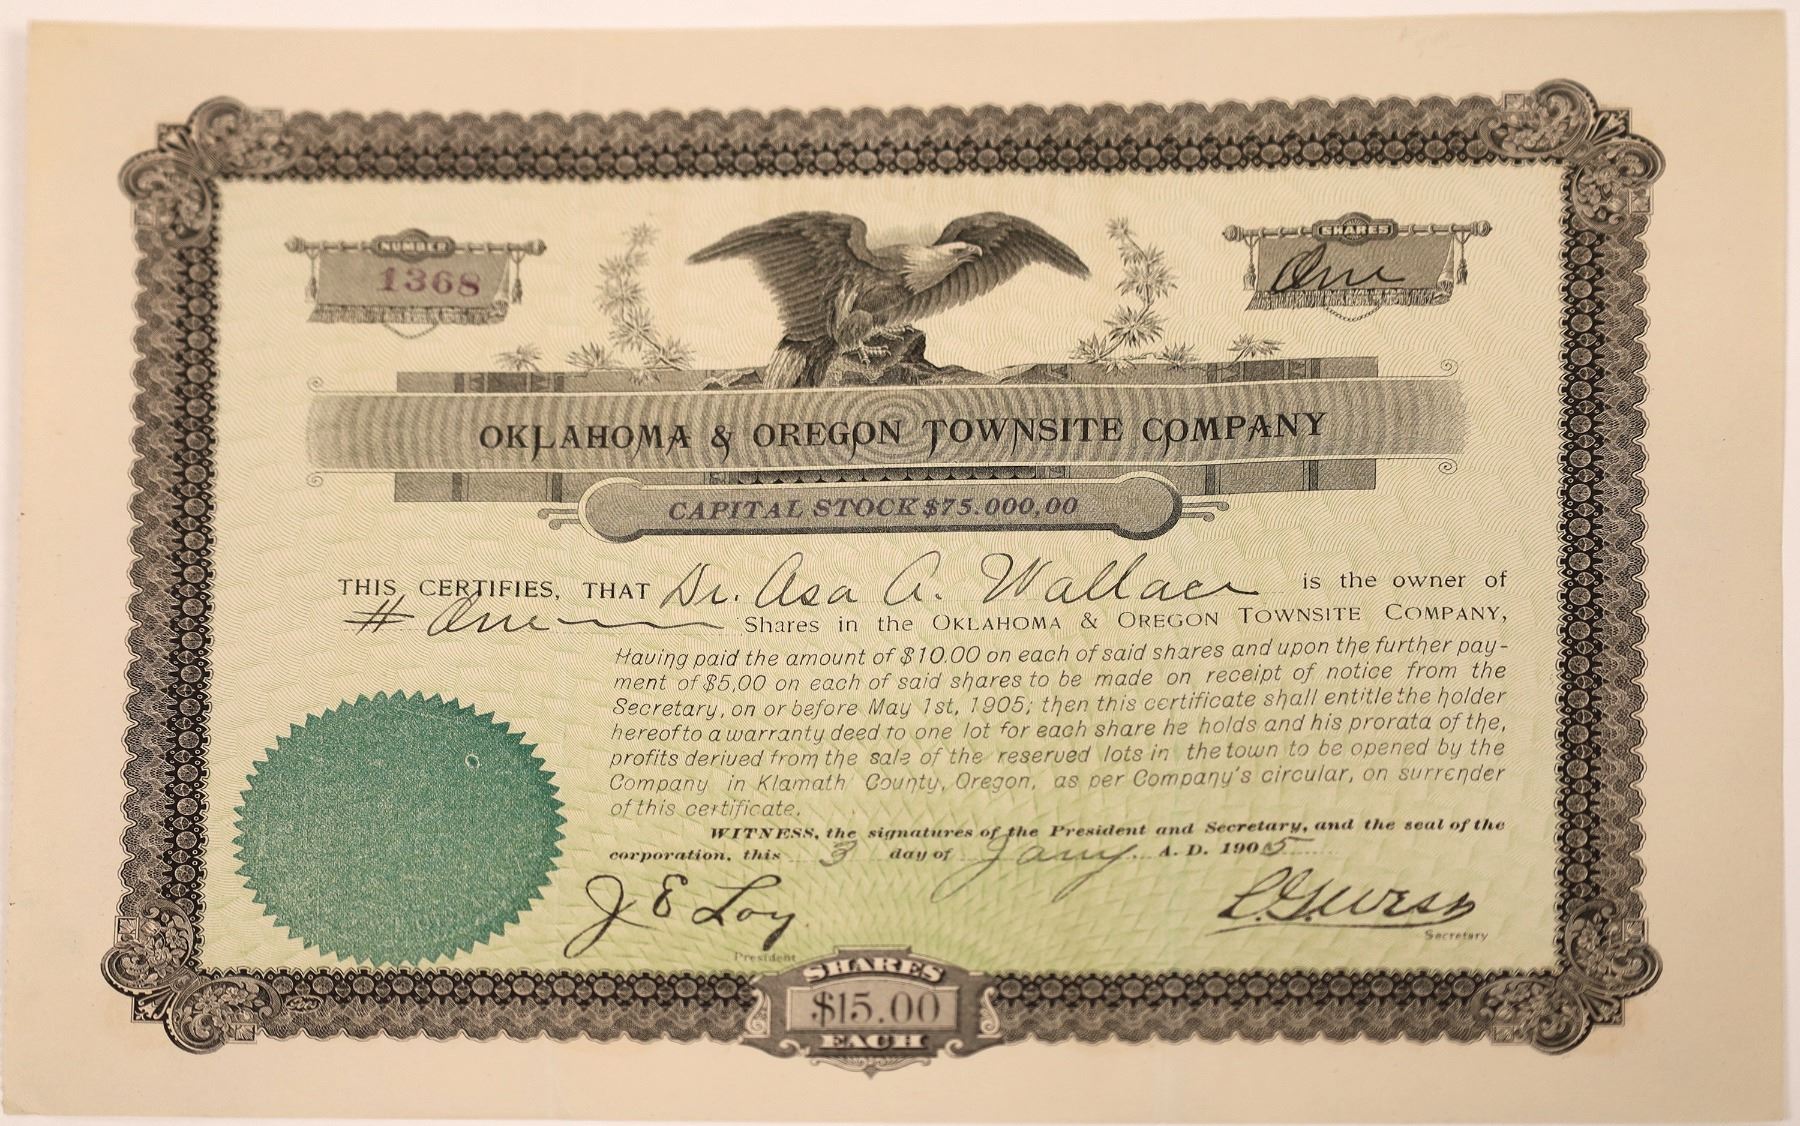 NUMBER
1368
SHARES
One
OKLAHOMA & OREGON TOWNSITE COMPANY
CAPITAL STOCK $75.000,00
THIS CERTIFIES, THAT Dr. Asa A. Wallace is the owner of
# One Shares in the OKLAHOMA & OREGON TOWNSITE COMPANY,
Having paid the amount of $10.00 on each of said shares and upon the further pay-
ment of $5,00 on each of said shares to be made on receipt of notice from the
Secretary, on or before May 1st, 1905; then this certificate shall entitle the holder
hereof to a warranty deed to one lot for each share he holds and his prorata of the,
profits derived from the sale of the reserved lots in the town to be opened by the
Company in Klamath County, Oregon, as per Company's circular, on surrender
of this certificate.
WITNESS, the signatures of the President and Secretary, and the seal of the
corporation, this 3 day of Jany. A. D. 1905
J E Loy
President
Secretary
SHARES
$15.00
EACH